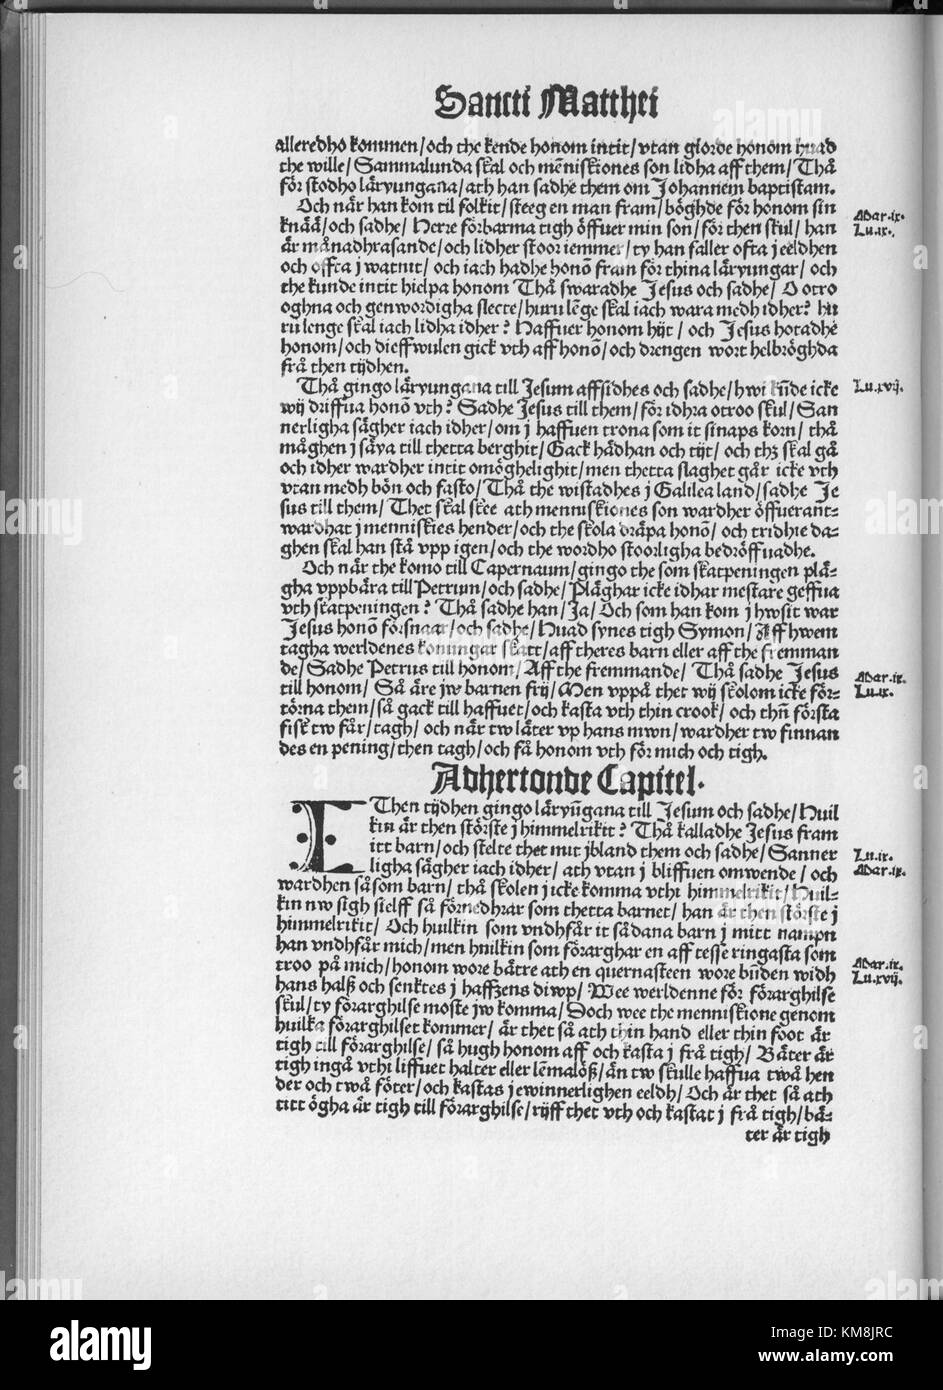 Sancti Matthei
alleredho kommen/och the kende honom intit/vtan giorde honom huad
the wille/Sammalunda skal och mēniskiones son lidha aff them/Thå
för stodho läryungana/ath han sadhe them om Johannem baptistam.
Och när han kom til folkit/steeg en man fram/böghde för honom sin
knää/och sadhe/Herre förbarma tigh öffuer min son/för then skul/han
är månadhrasande/och lidher stoor iemmer/ty han faller ofta j eeldhen
och offta j watnit/och iach hadhe honō fram för thina läryungar/och
the kunde intit hielpa honom Thå swaradhe Jesus och sadhe/O otro
oghna och genwordigha slecte/huru lēge skal iach wara medh idher? hu
ru lenge skal iach lidha idher? Haffuer honom hijt/och Jesus hotadhe
honom/och dieffwulen gick vth aff honō/och drengen wort helbröghda
frå then tijdhen.
Thå gingo läryungana till Jesum affsidhes och sadhe/hwi kūde icke
wij driffua honō vth? Sadhe Jesus till them/för idhra otroo skul/San
nerligha sägher iach idher/om j haffuen trona som it sinaps korn/thå
måghen j säya till thetta berghit/Gack hädhan och tijt/och thz skal gå
och idher wardher intit omöghelighit/men thetta slaghet går icke vth
vtan medh bön och fasto/Thå the wistadhes j Galilea land/sadhe Je
sus till them/Thet skal skee ath menniskiones son wardher öffuerant-
wardhat j menniskies hender/och the skola dräpa honō/och tridhie da-
ghen skal han stå vpp igen/och the wordho stoorligha bedröffuadhe.
Och när the komo till Capernaum/gingo the som skatpeningen plä-
gha vppbära till Petrum/och sadhe/Pläghar icke idhar mestare geffua
vth skatpeningen? Thå sadhe han/Ja/Och som han kom j hwsit war
Jesus honō försnaar/och sadhe/Huad synes tigh Symon/Aff hwem
tagha werldenes konungar skatt/aff theres barn eller aff the fremman
de/Sadhe Petrus till honom/Aff the fremmande/Thå sadhe Jesus
till honom/Så äre jw barnen frij/Men vppå thet wij skolom icke för-
törna them/så gack till haffuet/och kasta vth thin crook/och thn̄ första
fisk tw får/tagh/och när tw läter vp hans mwn/wardher tw finnan
des en pening/then tagh/och få honom vth för mich och tigh.
Adhertonde Capitel.
I Then tijdhen gingo läryūgana till Jesum och sadhe/Huil
kin är then störste j himmelrikit? Thå kalladhe Jesus fram
itt barn/och stelte thet mit jbland them och sadhe/Sanner
ligha sägher iach idher/ath vtan j bliffuen omwende/och
wardhen såsom barn/thå skolen j icke komma vthi himmelrikit/Huil-
kin nw sigh sielff så förnedhrar som thetta barnet/han är then störste j
himmelrikit/Och huilkin som vndhfår it sådana barn j mitt nampn
han vndhfår mich/men huilkin som förarghar en aff tesse ringasta som
troo på mich/honom wore bätre ath en quernasteen wore būden widh
hans halß och senktes j haffzens diwp/Wee werldenne för förarghilse
skul/ty förarghilse moste jw komma/Doch wee the menniskione genom
huilka förarghilset kommer/är thet så ath thin hand eller thin foot är
tigh till förarghilse/så hugh honom aff och kasta j frå tigh/Bäter är
tigh ingå vthi liffuet halter eller lēmalöß/än tw skulle haffua twå hen
der och twå föter/och kastas j ewinnerlighen eeldh/Och är thet så ath
titt ögha är tigh till förarghilse/rijff thet vth och kastat j frå tigh/bä-
ter är tigh
Mar.ix.
Lu.ix.
Lu.xvij.
Mar.ix.
Lu.ix.
Lu.ix.
Mar.ix.
Mar.ix.
Lu.xvij.
alamy
Image ID: KM8JRC
www.alamy.com